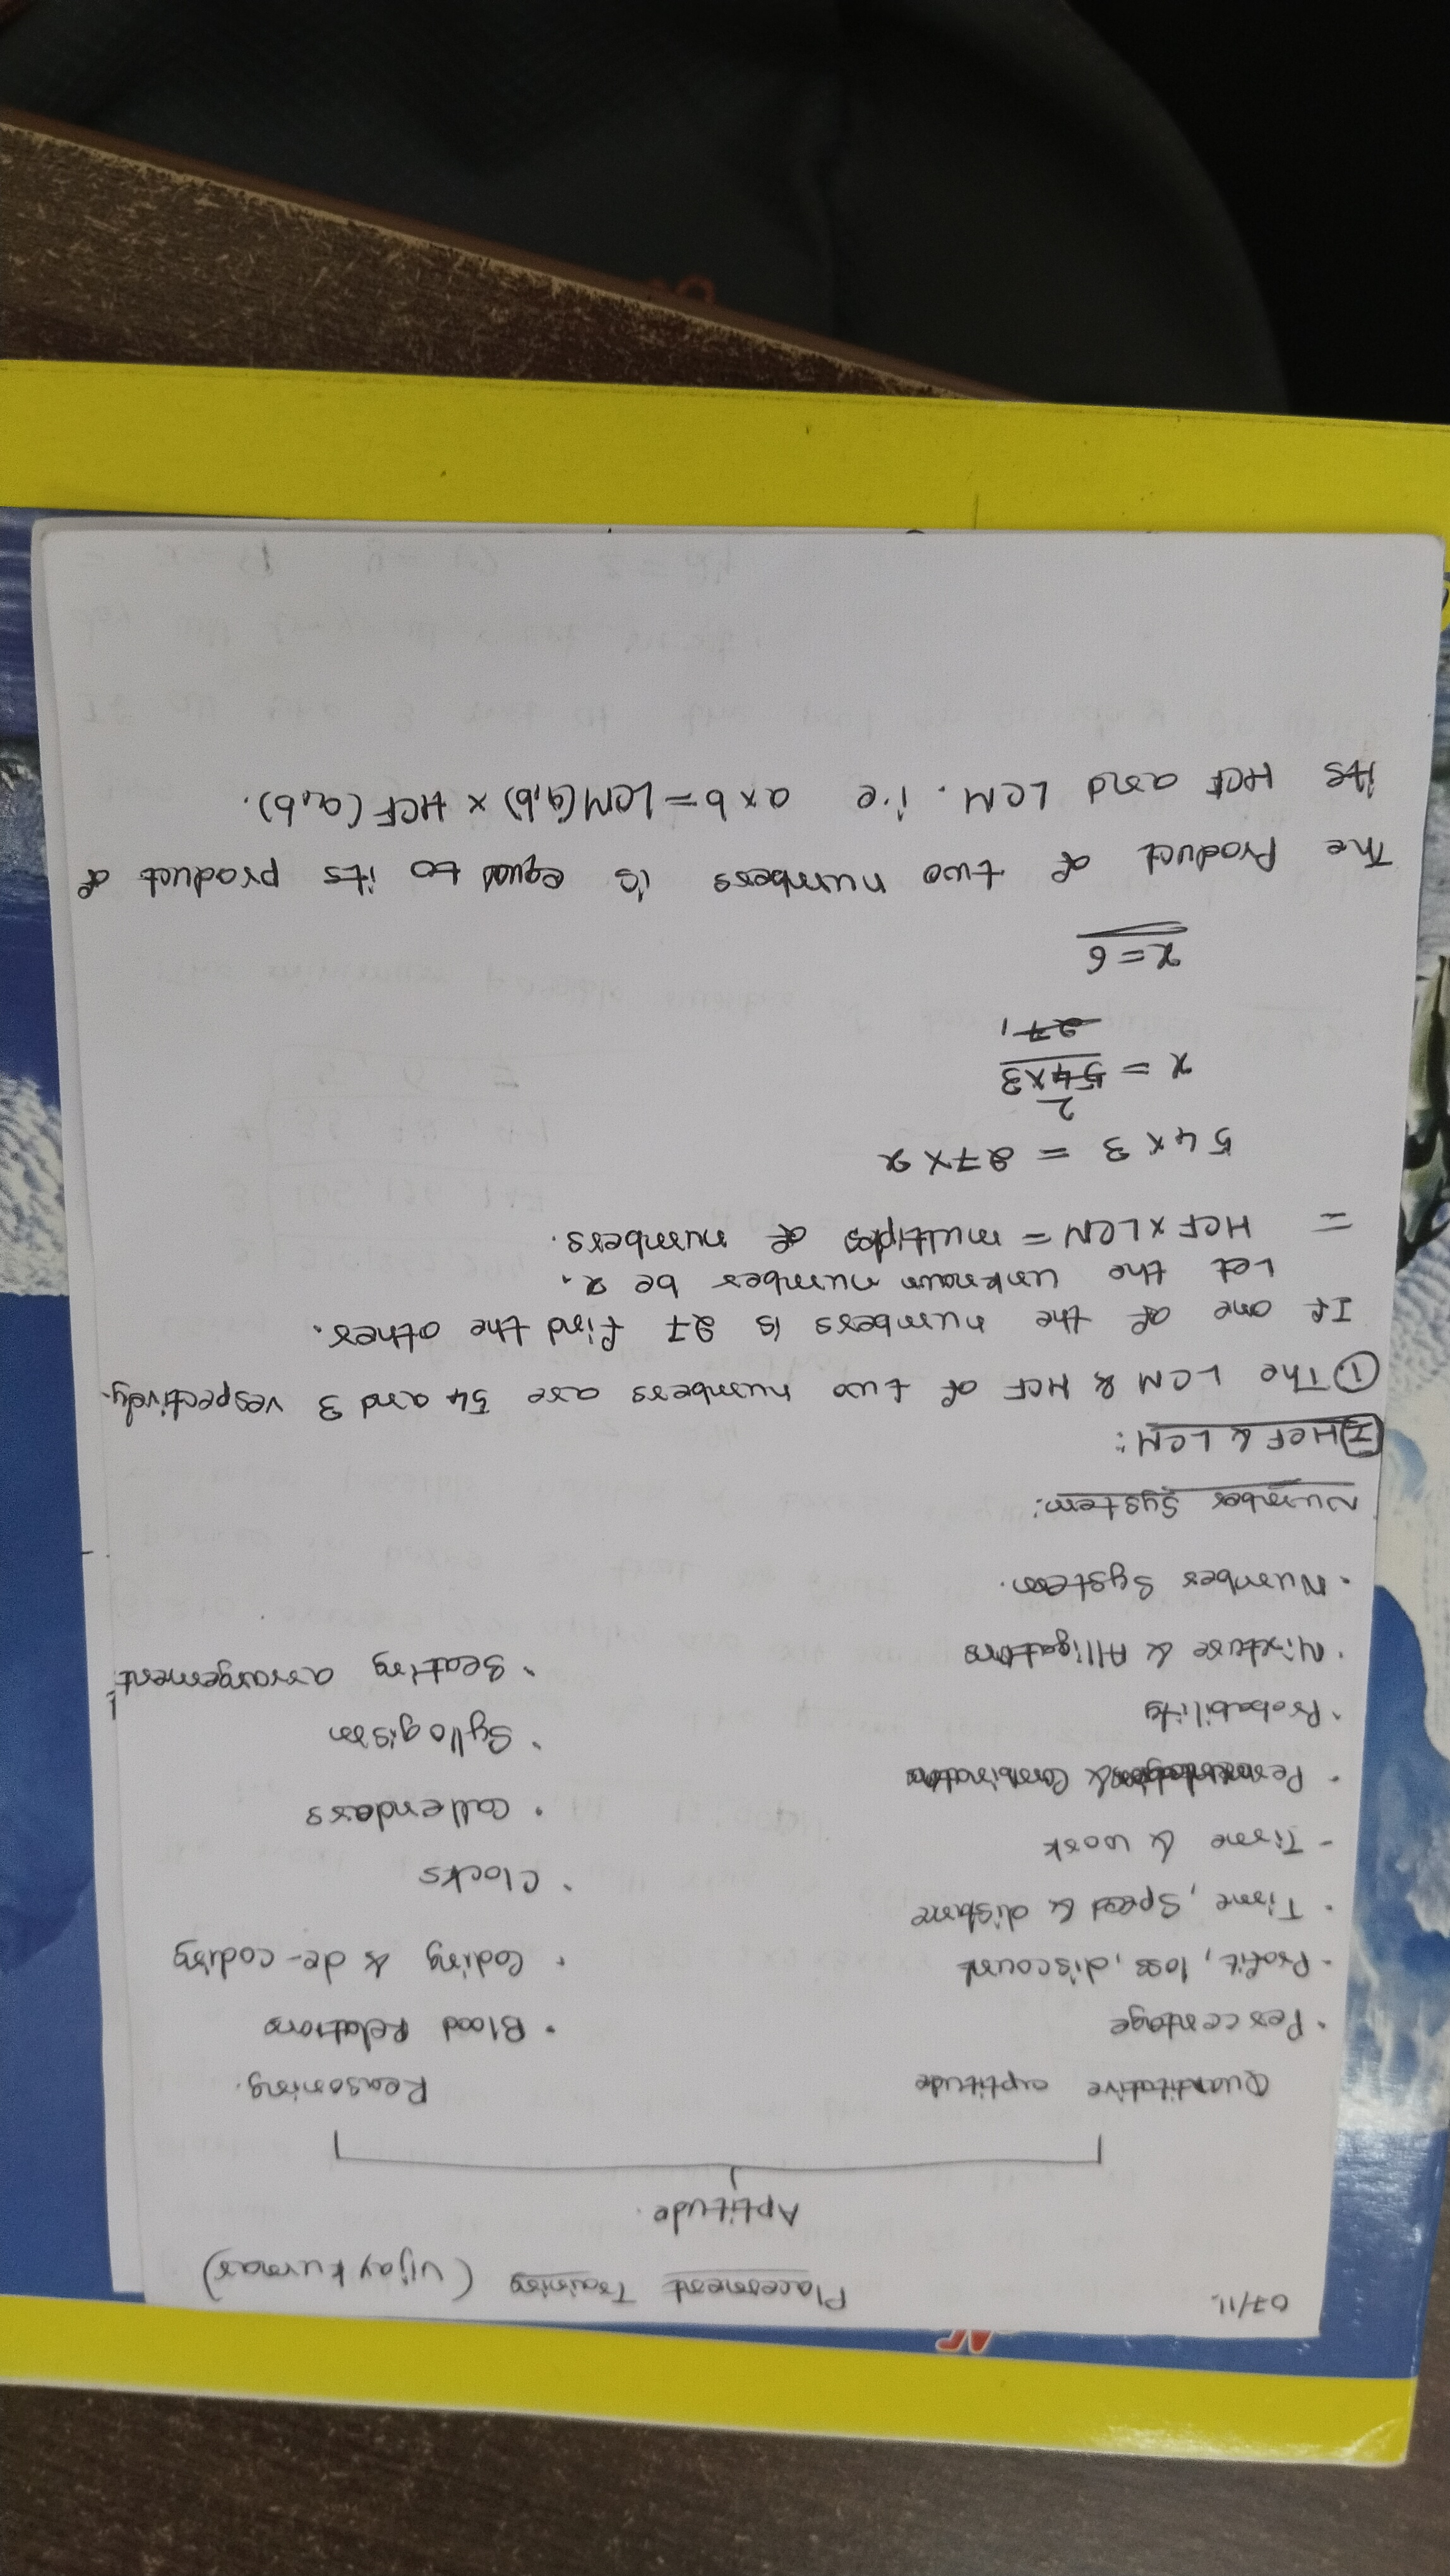 07/11. Placement Training (Vijay kumar)
Aptitude.
Quantitative aptitude
• Percentage
- Profit, loss, discount
• Time, Speed & distance
- Time & work
• & Combinations
• Probability
• Mixture & Alligations
• Number System.
Reasoning.
• Blood Relations
• Coding & de-coding
• Clocks
• Callendars
• Syllogism
• Seating arrangement
Number System:
I) HCF & LCM:
① The LCM & HCF of two numbers are 54 and 3 respectively.
If one of the numbers is 27 find the other.
Let the unknown number be x.
= HCF x LCM = multiples of numbers.
54 x 3 = 27 x x
2
x = 54x3
27 1
x = 6
The Product of two numbers is equal to its product of
its HCF and LCM. i.e a x b = LCM(a,b) x HCF (a,b).
N